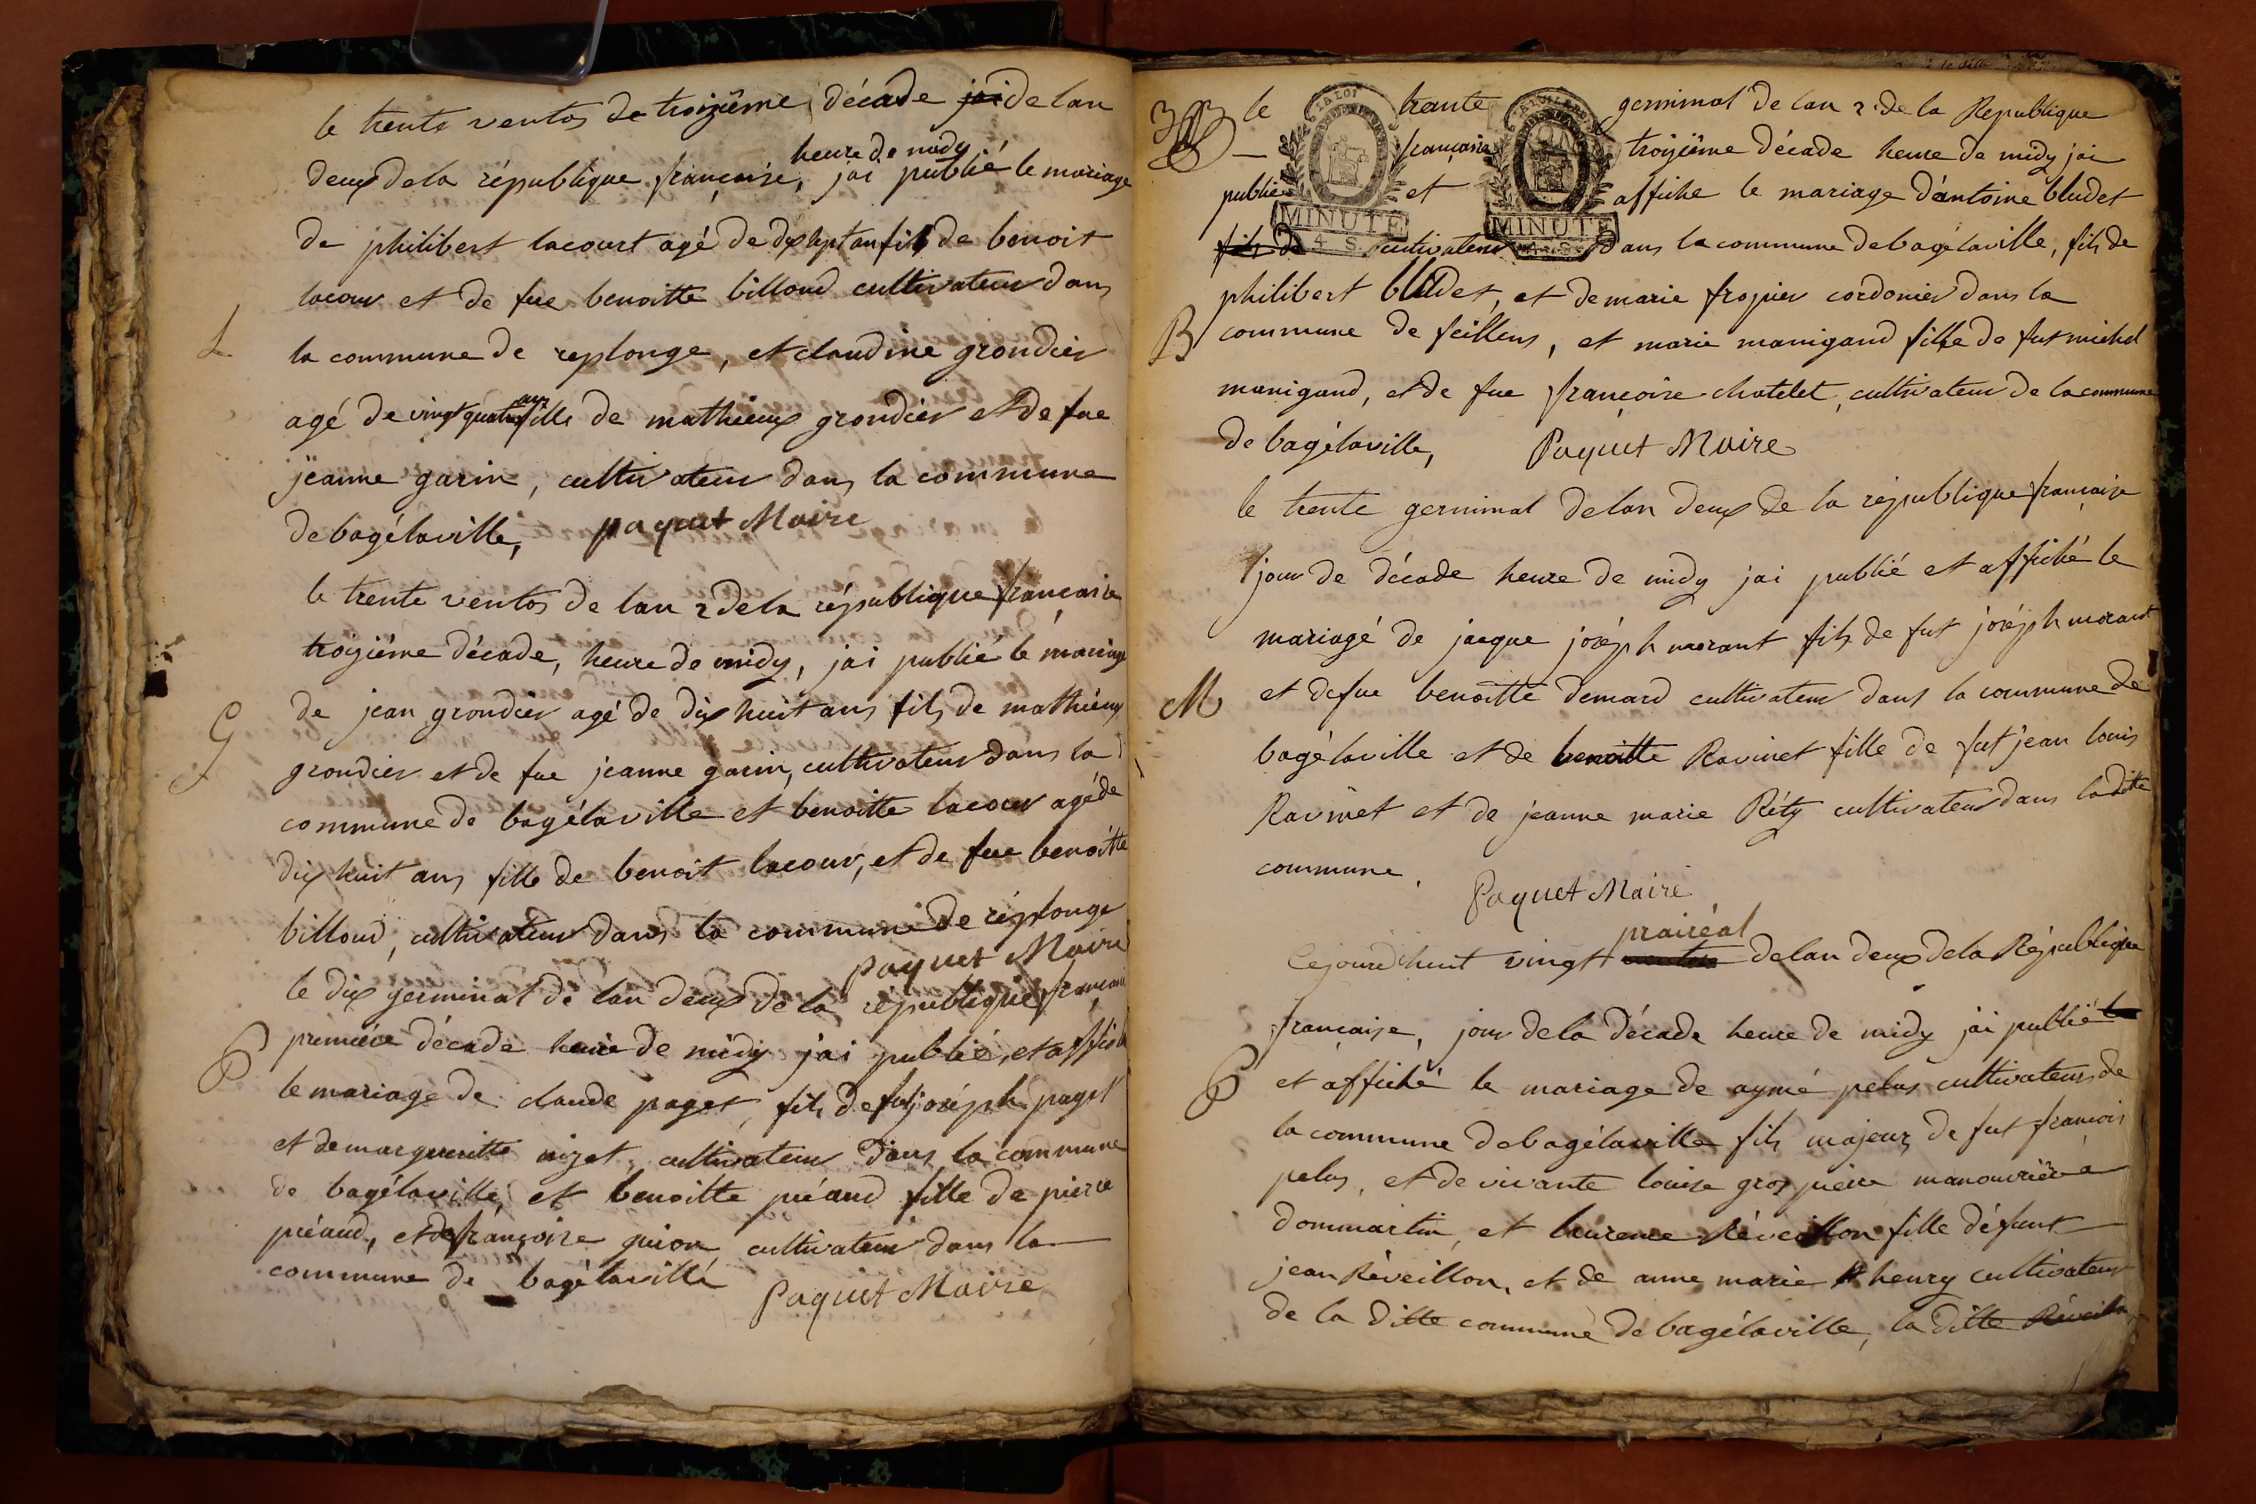 le trente ventos de troizième décade jai de lan
heure de midy
deux de la république françaisé, jai publié le mariage
de philibert lacourt agé de dix sept an fils de benoit
lacour et de fue benoitte billoud cultivateur dans
L
la commune de replonge, et claudine grondier
ans
agé de vingt quatre fille de mathieux grondier et de fue
jeanne garin, cultivateur dans la commune
de bagélaville, paquet Maire
le trente ventos de lan 2 de la république française
troizième décade, heure de midy, jai publié le mariage
G
de jean grondier agé de dix huit ans fils de mathieux
grondier et de fue jeanne garin, cultivateur dans la
commune de bagélaville et benoitte lacour agé de
dix huit ans fille de benoit lacour, et de fue benoitte
billoud, cultivateur dans la commune de réplonge
paquet Maire
le dix germinal de lan deux de la république française
P
première décade heure de midy jai publié, et affiché
le mariage de claude paget, fils de fut joséph paget
et de margueritte nizet, cultivateur dans la commune
de bagélaville, et benoitte préaud fille de pierre
préaud, et de françoise guion cultivateur dans la
commune de bagélaville
Paquet Maire
33 le trente germinal de lan 2 de la Republique
française troizième décade heure de midy jai
publié et affiche le mariage dántoine bludet
fils de cultivateur dans la commune de bagélaville, fils de
philibert bludet, et de marie fropier cordonier dans la
B
commune de feillens, et marie manigand fille de fut michel
manigand, et de fue françoise chatelet, cultivateur de la commune
de bagélaville, Paquet Maire
LA LOI
MINUTE
4. S.
MINUTE
le trente germinal de lan deux de la république française
jour de décade heure de midy jai publié et affiché le
mariagé de jacque joséph morant fils de fut joséph morant
M
et de fue benoitte demard cultivateur dans la commune de
bagélaville et de benoitte Ravinet fille de fut jean louis
Ravinet et de jeanne marie Réty cultivateur dans laditte
commune.
Paquet Maire
prairéal
Cejourdhuit vingt ventose de lan deux de la République
française, jour de la décade heure de midy jai publié le
P
et affiché le mariage de aymé pelus cultivateur de
la commune de bagélaville fils majeur de fut françois
pelus, et de vivante louise gros pierre manouvrière a
dommartin, et laurence Réveillon fille défunt
jean Réveillon, et de anne marie henry cultivateur
de la ditte commune de bagélaville, la ditte Réveillon